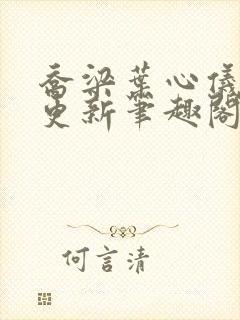 乔梁葉心儀
更新筆趣閣
何言清